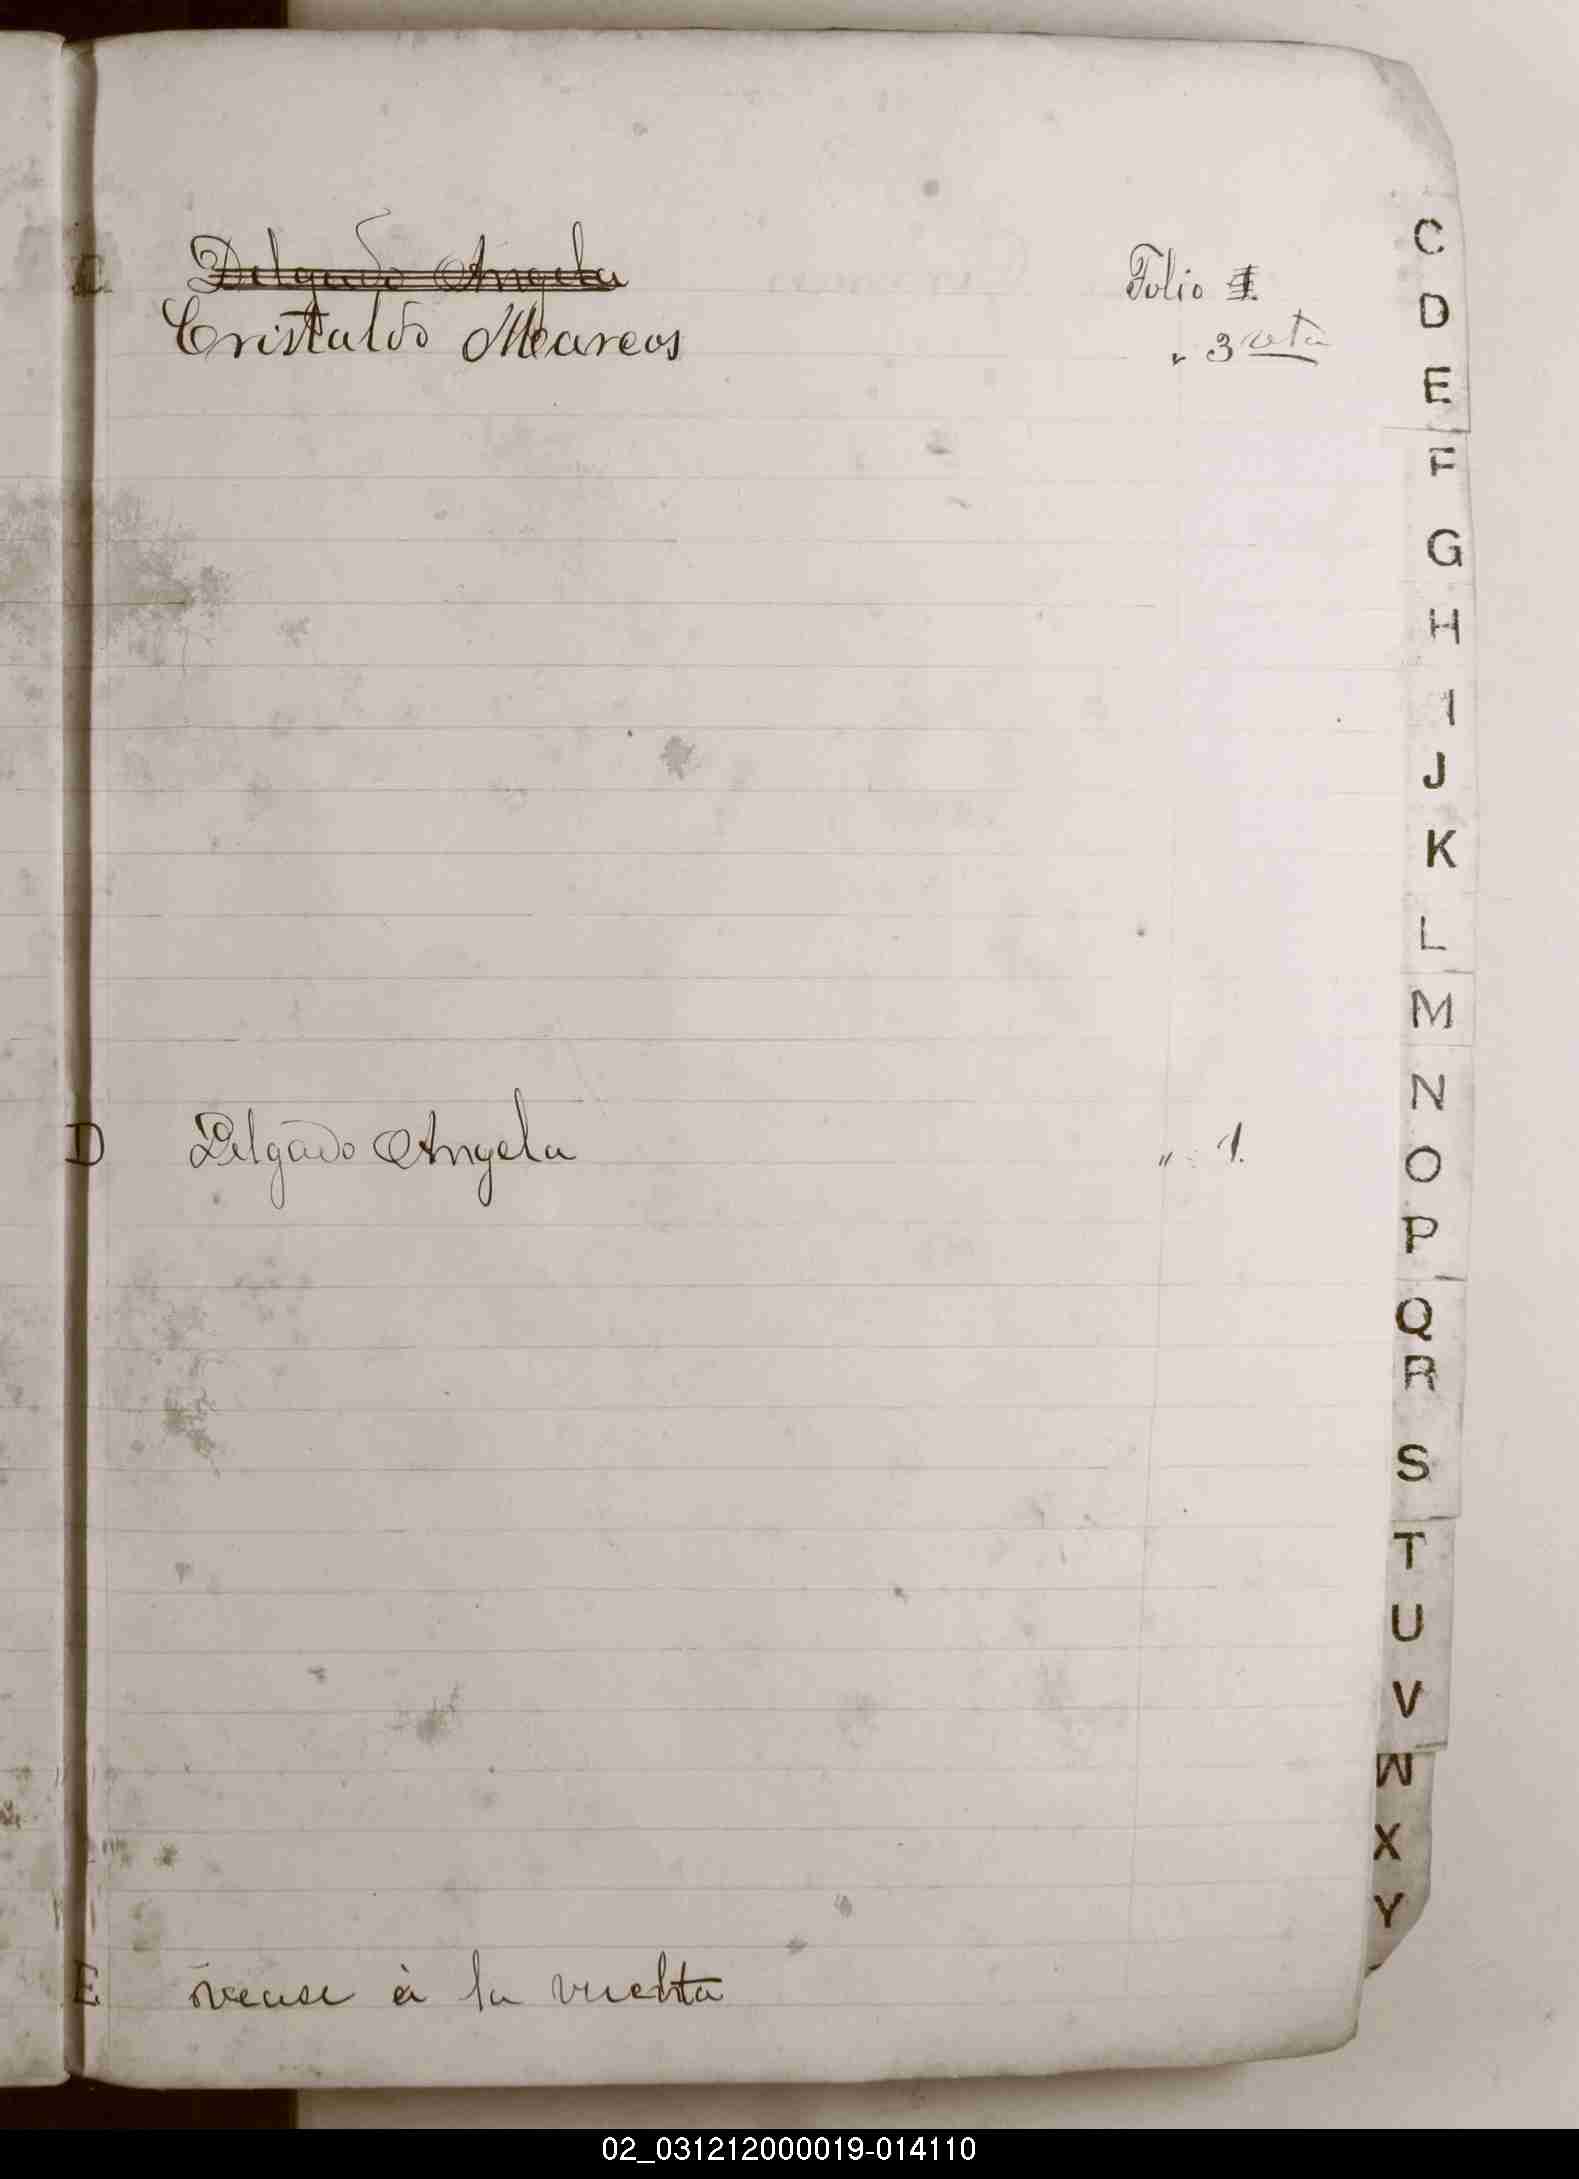 C Delgado Angela Folio 1.
Cristaldo Marcos " 3 vta
D Delgado Angela " 1.
E vease à la vuelta
C
D
E
F
G
H
I
J
K
L
M
N
O
P
Q
R
S
T
U
V
W
X
Y
02_031212000019-014110